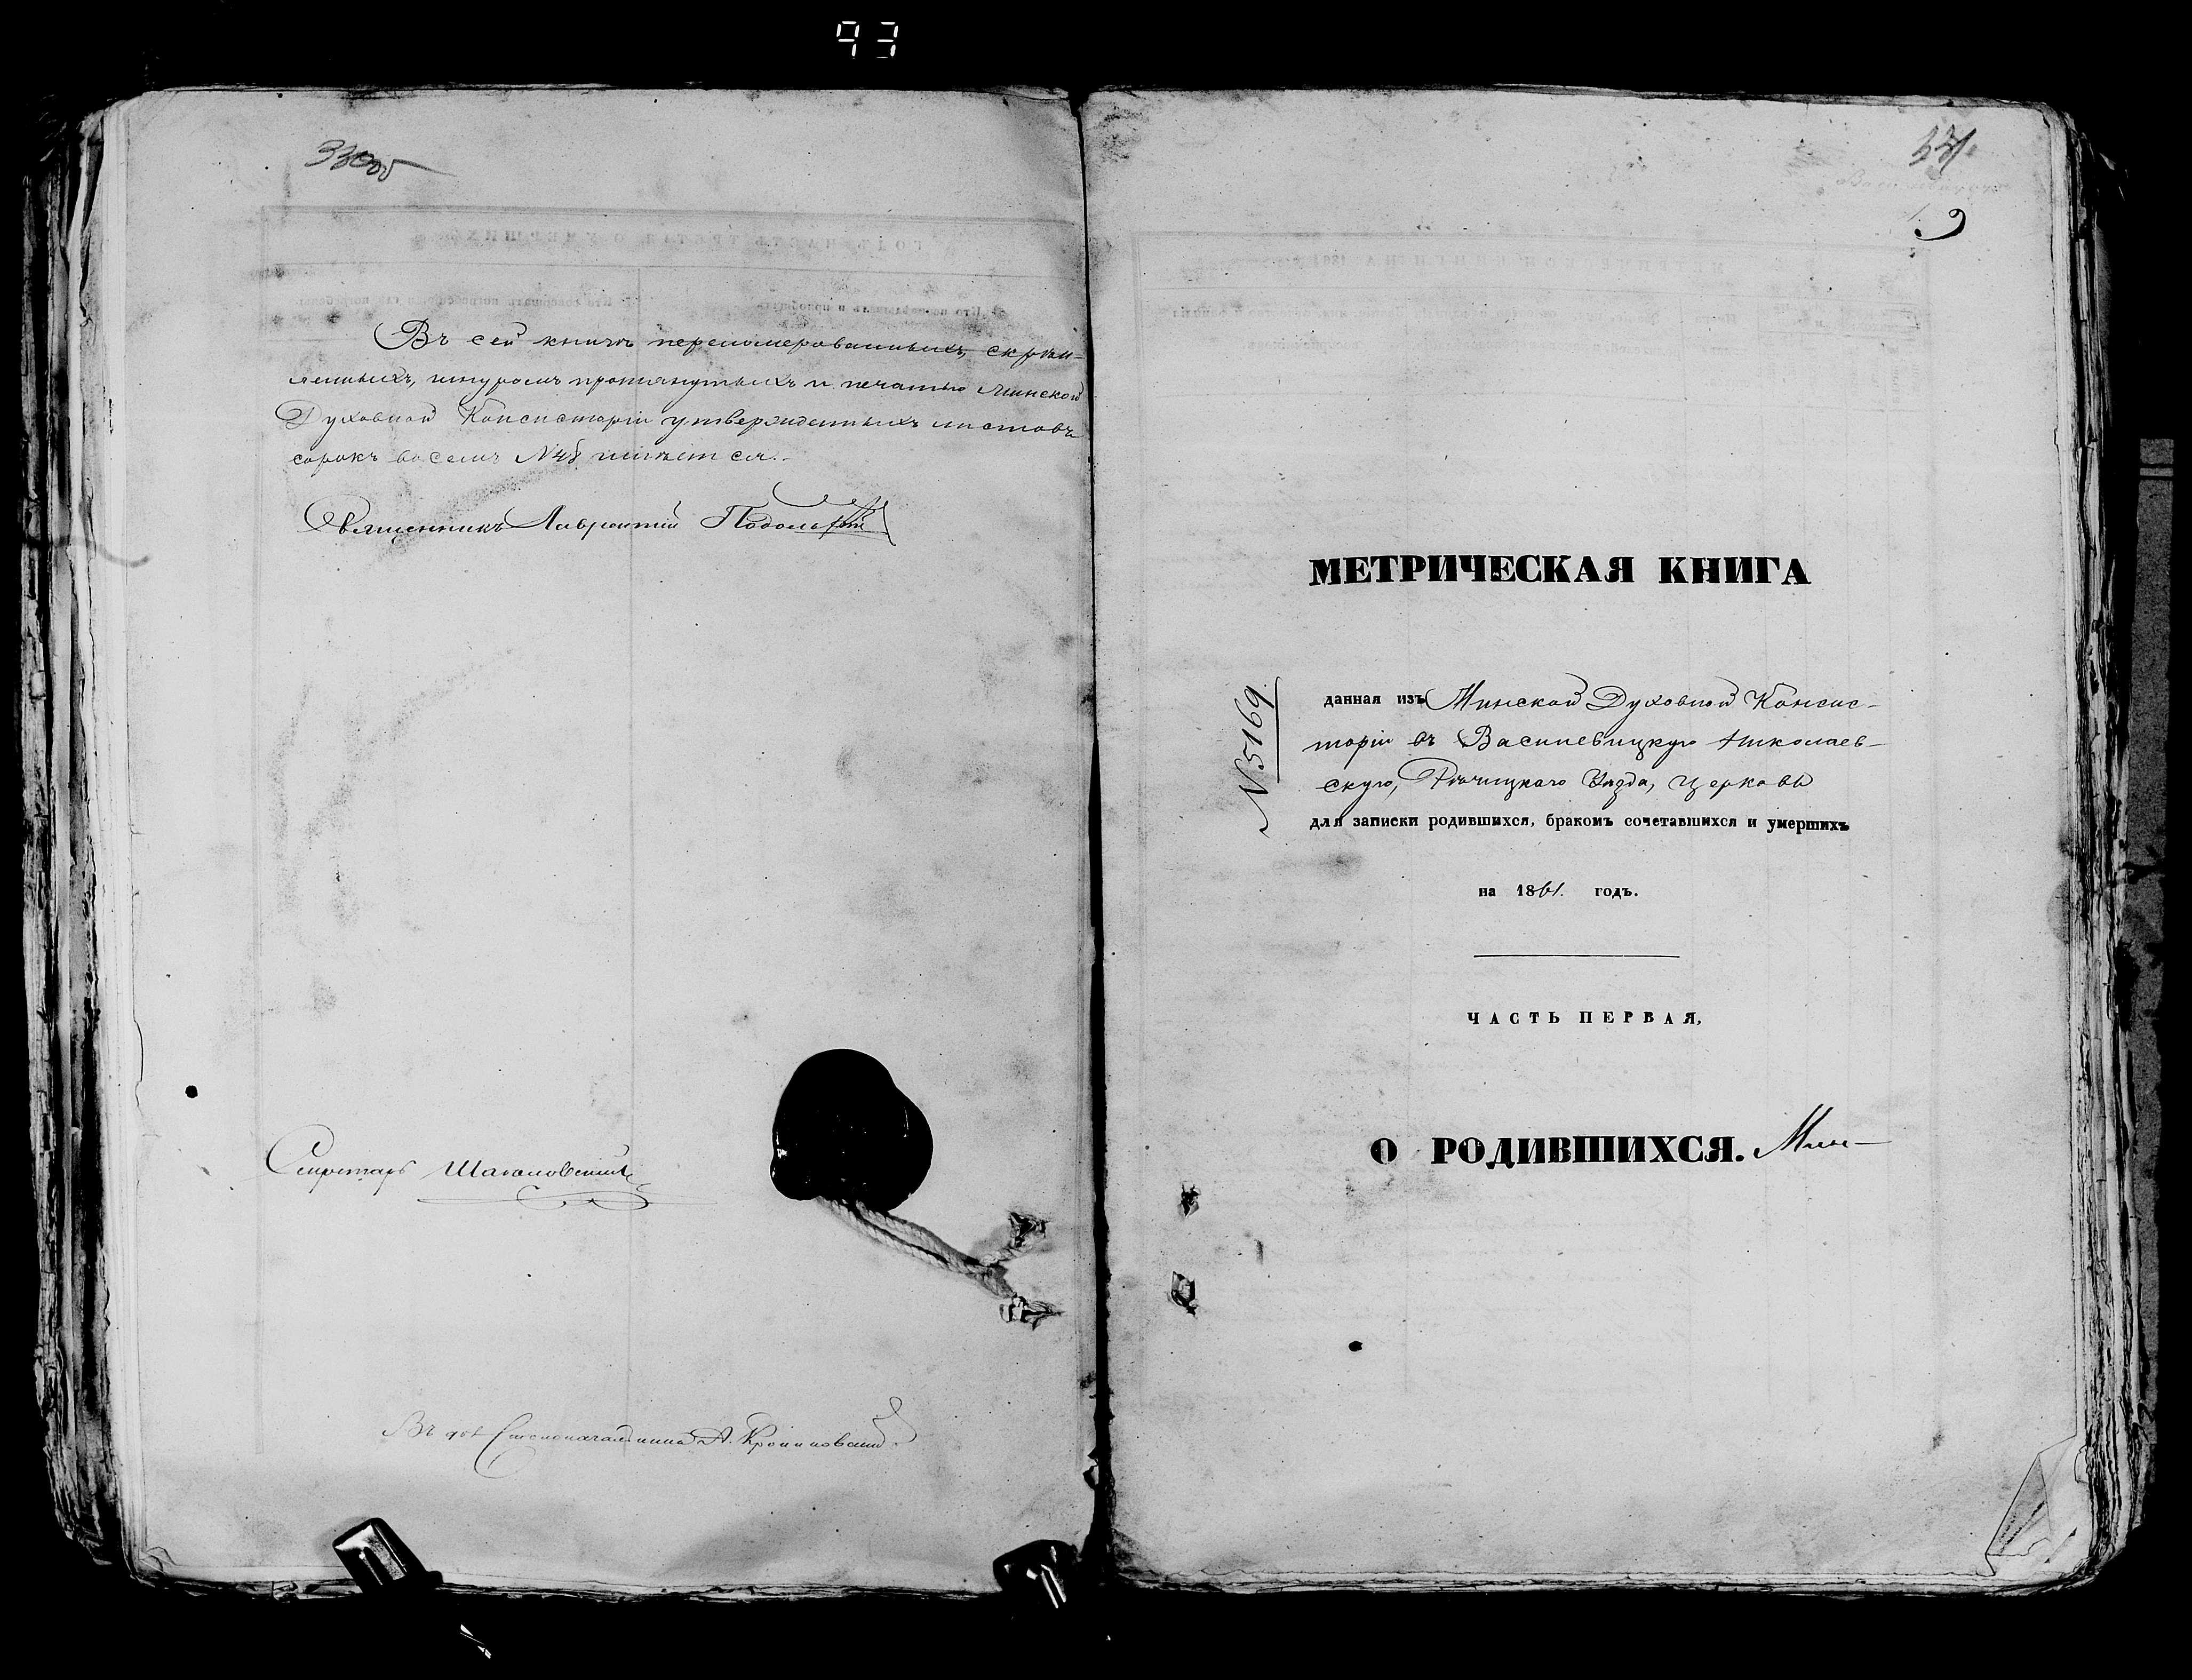 93
330об
Въ сей книгѣ перепомерованныхъ, скрѣп-
ленныхъ, шнуромъ протянутыхъ и печатью Минской
Духовной Консисторіи утвержденныхъ листовъ
сорокъ восемь №48 имѣется.
Священникъ Лаврентій
Секретарь
Столоначальника А.
331
МЕТРИЧЕСКАЯ КНИГА
№5169
данная изъ Минской Духовной Консис-
торіи въ Василевицкую Николаев-
скую, Рѣчицкаго Уѣзда, церковь
для записки родившихся, бракомъ сочетавшихся и умершихъ
на 1861. годъ.
ЧАСТЬ ПЕРВАЯ,
О РОДИВШИХСЯ. Мин-